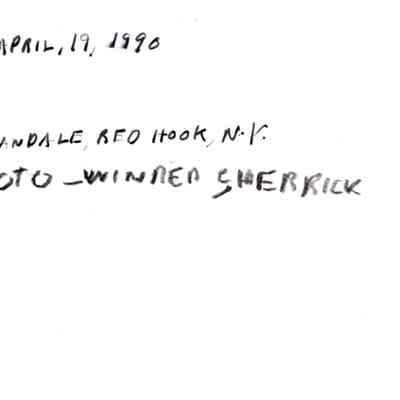 APRIL, 19, 1990
ANDALE, RED HOOK, N.Y.
OTO - WINRED SHERRICK